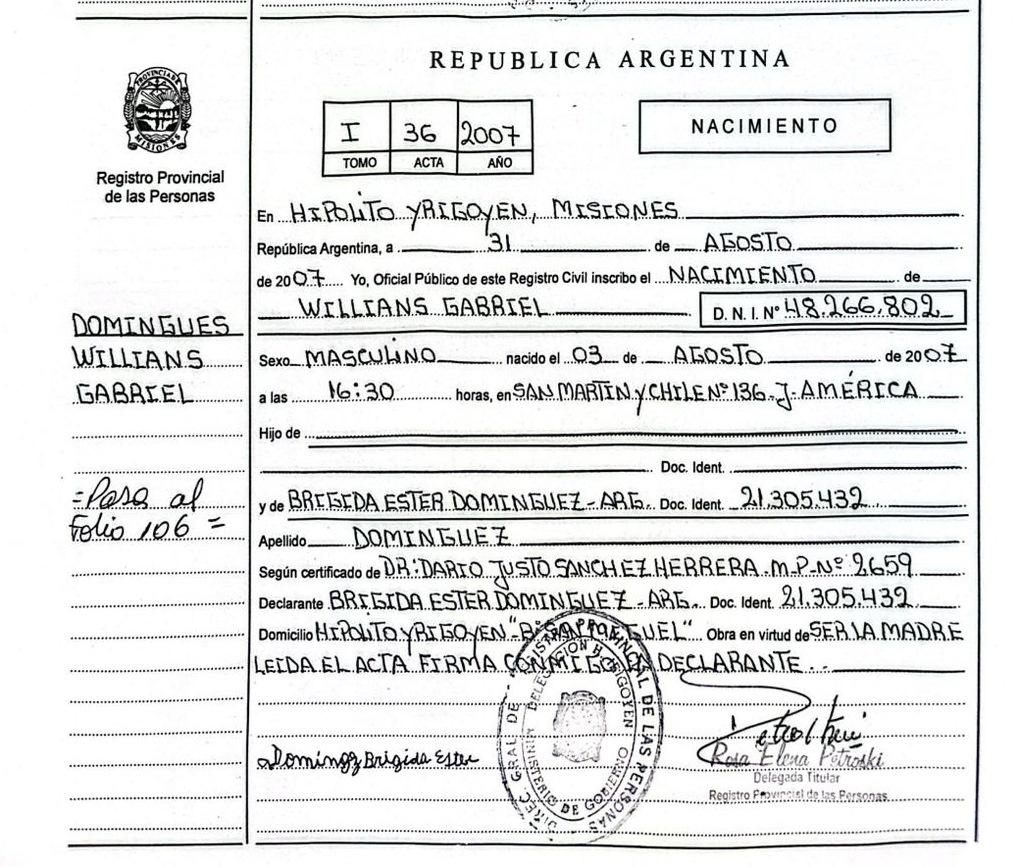 REPUBLICA ARGENTINA
PROVINCIA DE MISIONES
Registro Provincial
de las Personas
I 36 2007
TOMO ACTA AÑO
NACIMIENTO
En HIPOLITO YRIGOYEN, MISIONES
República Argentina, a 31 de AGOSTO
de 2007 Yo, Oficial Público de este Registro Civil inscribo el NACIMIENTO de
WILLIANS GABRIEL D. N. I. Nº 48.266.802
DOMINGUES
WILLIANS
GABRIEL
Sexo MASCULINO nacido el 03 de AGOSTO de 2007
a las 16:30 horas, en SAN MARTIN Y CHILE Nº 136. J. AMÉRICA
Hijo de
Doc. Ident.
=Pasa al
Folio 106 =
y de BRIGIDA ESTER DOMINGUEZ - ARG. Doc. Ident. 21.305.432
Apellido DOMINGUEZ
Según certificado de DR: DARIO JUSTO SANCHEZ HERRERA - M.P. Nº 2659
Declarante BRIGIDA ESTER DOMINGUEZ - ARG. Doc. Ident. 21.305.432
Domicilio HIPOLITO YRIGOYEN "Bº SAN MIGUEL" Obra en virtud de SER LA MADRE
LEIDA EL ACTA FIRMA CONMIGO DECLARANTE..
Brigida Ester
Rosa Elena Petroski
Delegada Titular
Registro Provincial de las Personas
DIREC. GRAL DE PROVINCIAL DE LAS PERSONAS
MINISTERIO DE GOBIERNO
DELEGACIÓN H. YRIGOYEN